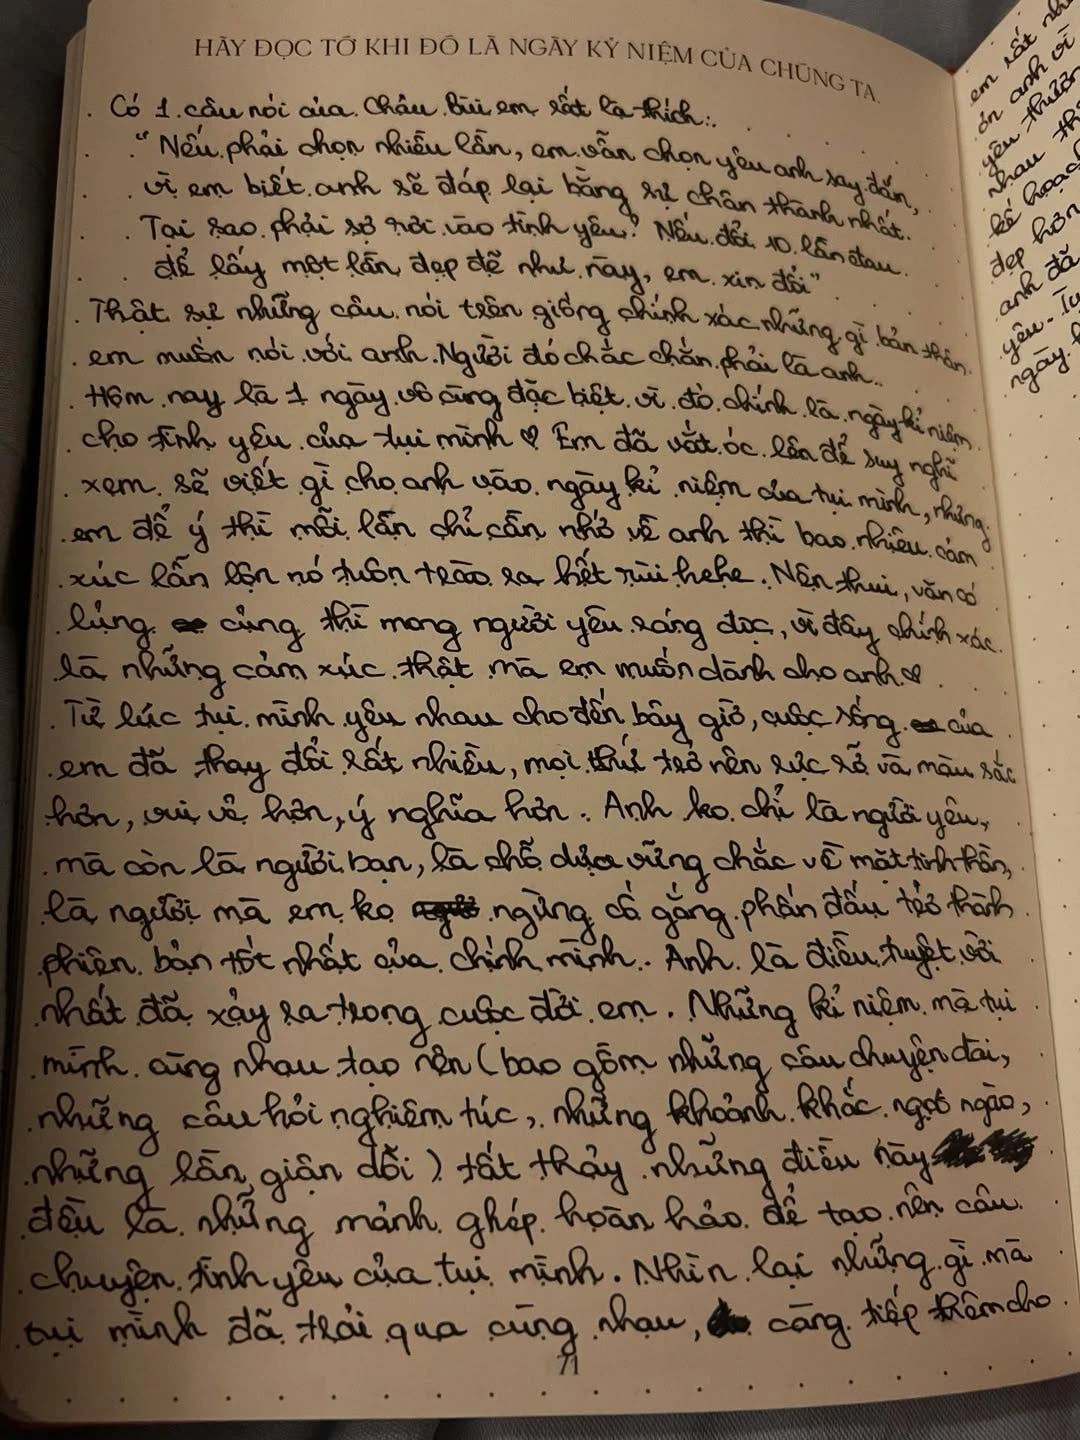 HÃY ĐỌC TỚ KHI ĐÓ LÀ NGÀY KỶ NIỆM CỦA CHÚNG TA.
Có 1 câu nói của Châu Bùi em rất là thích:
"Nếu phải chọn nhiều lần, em vẫn chọn yêu anh say đắm,
vì em biết anh sẽ đáp lại bằng sự chân thành nhất.
Tại sao phải sợ rơi vào tình yêu? Nếu đổi 10 lần đau
để lấy một lần đẹp đẽ như này, em xin đổi"
Thật sự những câu nói trên giống chính xác những gì bản thân
em muốn nói với anh. Người đó chắc chắn phải là anh..
Hôm nay là 1 ngày vô cùng đặc biệt vì đó chính là ngày kỉ niệm
cho tình yêu của tụi mình ♡ Em đã vắt óc lên để suy nghĩ
xem sẽ viết gì cho anh vào ngày kỉ niệm của tụi mình, nhưng
em để ý thì mỗi lần chỉ cần nhớ về anh thì bao nhiêu cảm
xúc lẫn lộn nó tuôn trào ra hết rùi hehe. Nên thui, văn có
lủng củng thì mong người yêu ráng đọc, vì đây chính xác
là những cảm xúc thật mà em muốn dành cho anh ♡
Từ lúc tụi mình yêu nhau cho đến bây giờ, cuộc sống của
em đã thay đổi rất nhiều, mọi thứ trở nên rực rỡ và màu sắc
hơn, vui vẻ hơn, ý nghĩa hơn. Anh ko chỉ là người yêu,
mà còn là người bạn, là chỗ dựa vững chắc về mặt tinh thần,
là người mà em ko ngừng cố gắng phấn đấu trở thành
phiên bản tốt nhất của chính mình. Anh là điều tuyệt vời
nhất đã xảy ra trong cuộc đời em. Những kỉ niệm mà tụi
mình cùng nhau tạo nên (bao gồm những câu chuyện dài,
những câu hỏi nghiêm túc, những khoảnh khắc ngọt ngào,
những lần giận dỗi) tất thảy những điều này
đều là những mảnh ghép hoàn hảo để tạo nên câu
chuyện tình yêu của tụi mình. Nhìn lại những gì mà
tụi mình đã trải qua cùng nhau, càng tiếp thêm cho
71
em rất
ơn anh vì
yêu thương
nhau
kế hoạch
đẹp hơn
anh đã
yêu.
ngày